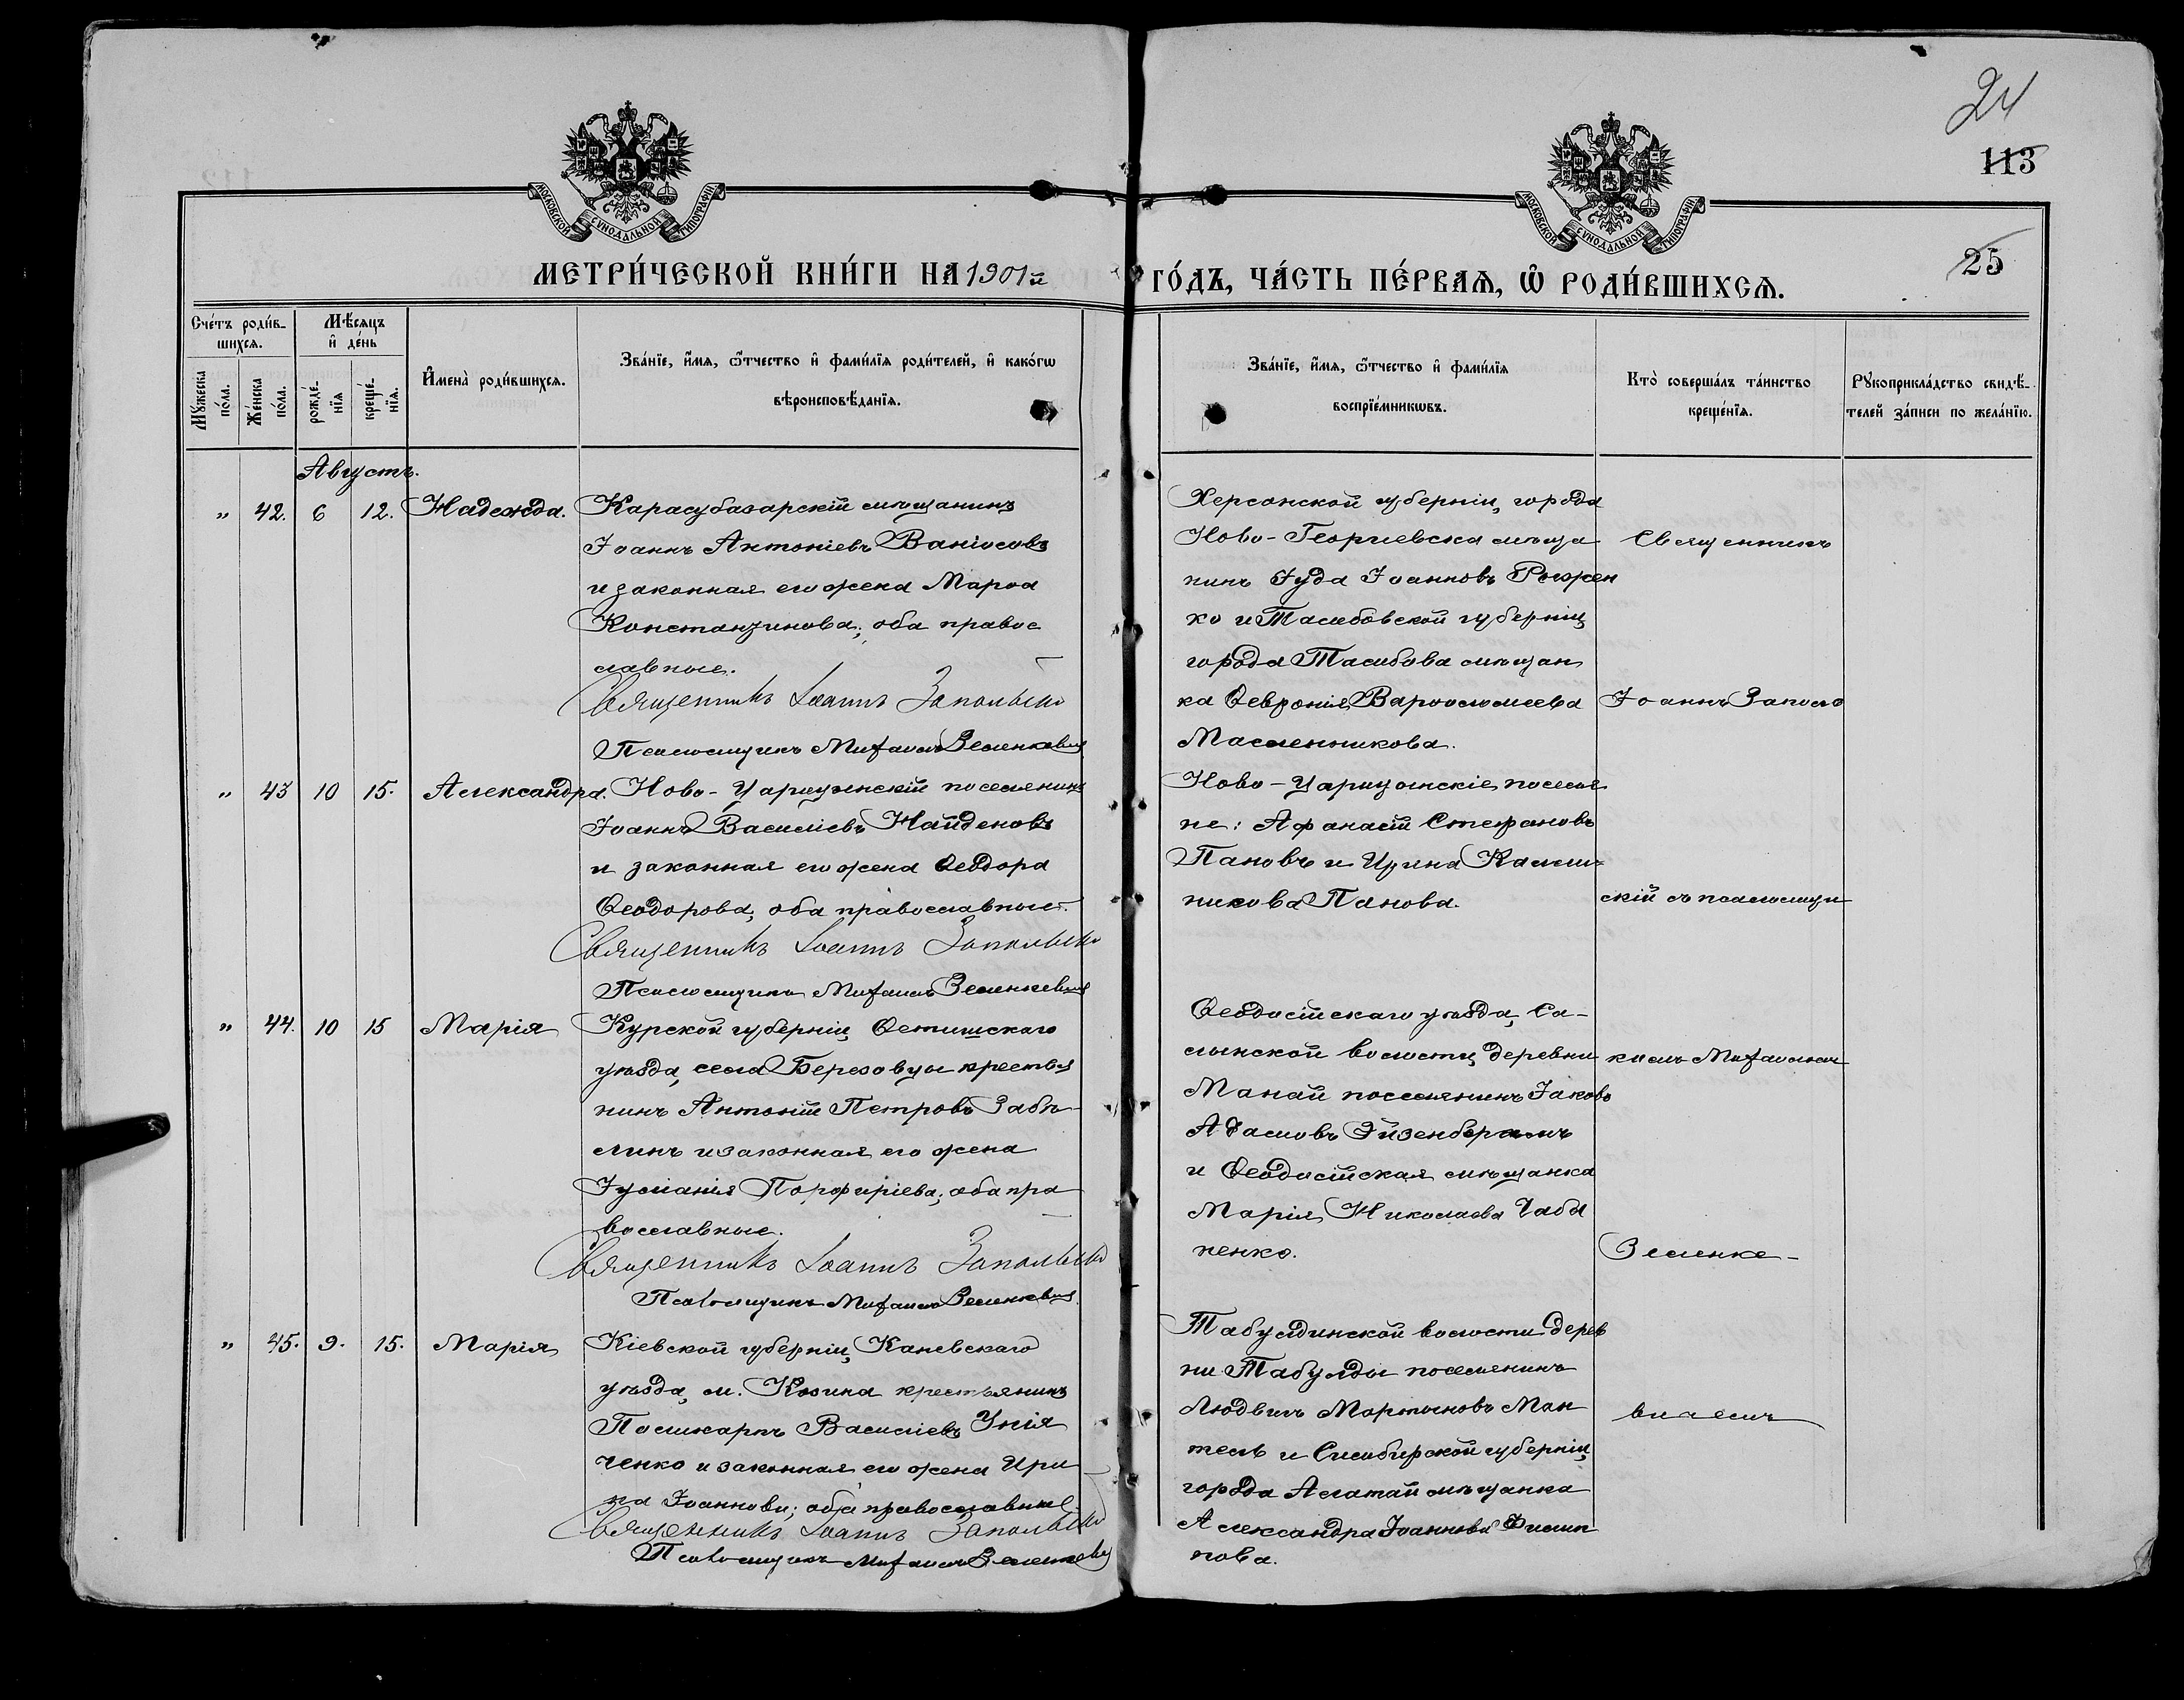 24
113
25
МОСКОВСКОЙ СѴНОДАЛЬНОЙ ТИПОГРАФІИ
МОСКОВСКОЙ СѴНОДАЛЬНОЙ ТИПОГРАФІИ
МЕТРИ́ЧЕСКОЙ КНИ́ГИ НА 1901й
ГО́ДЪ, ЧА́СТЬ ПЕ́РВАѦ, Ѽ РОДИ́ВШИХСѦ.
Сче́тъ роди́в-
шихсѧ.
Мꙋжеска
по́ла.
Же́нска
по́ла.
Мѣ́сѧцъ
и҆ де́нь
рожде́-
нїѧ
креще́-
нїѧ.
И҆мена̀ роди́вшихсѧ.
Зва́нїе, и҆́мѧ, ѻ҆́тчество и҆ фами́лїѧ роди́телей, и҆ како́гѡ
вѣроисповѣ́данїѧ.
Зва́нїе, и҆́мѧ, ѻ҆́тчество и҆ фами́лїѧ
воспрїе́мникѡвъ.
Кто̀ соверша́лъ та́инство
креще́нїѧ.
Рꙋкоприкла́дство свидѣ́-
телей за́писи по жела́нїю.
Августъ.
" 42. 6 12. Надежда.
Карасубазарскій мѣщанинъ
Іоаннъ Антоніевъ Ваніосовъ
и законная его жена Марѳа
Константинова; оба правос
лавные.
Священникъ Іоаннъ Запольскій
Псаломщикъ Михаилъ Зеленкевичъ
Херсонской губерніи, города
Ново-Георгіевска мѣща
нинъ Іуда Іоанновъ Рыжен
ко и Тамбовской губерніи,
города Тамбова мѣщан
ка Ѳевронія Варѳоломеева
Масленникова.
" 43 10 15. Александра.
Ново-Царицынскій поселянинъ
Іоаннъ Василіевъ Найденовъ
и законная его жена Ѳеодора
Ѳеодорова, оба православные.
Священникъ Іоаннъ Запольскій
Псаломщикъ Михаилъ Зеленкевичъ
Ново-Царицынскіе поселя
не: Афанасій Стефановъ
Пановъ и Ирина Калли-
никова Панова.
" 44. 10 15 Марія
Курской губерніи,
уѣзда, села Березовцы крестья
нинъ Антоній Петровъ Забѣ-
линъ и законная его жена
Іуліанія Порфиріева; оба пра
вославные.
Священникъ Іоаннъ Запольскій
Псаломщикъ Михаилъ Зеленкевичъ
Ѳеодосійскаго уѣзда, Са-
лынской волости, деревни
Манай поселянинъ Іаковъ
Адамовъ
и Ѳеодосійская мѣщанка
Марія Николаева Чаба
ненко.
" 45. 9. 15. Марія
Кіевской губерніи, Каневскаго
уѣзда, м. Козина крестьянинъ
Поликарпъ Василіевъ Унія
ченко и законная его жена Ири
на Іоаннова; оба православные.
Священникъ Іоаннъ Запольскій
Псаломщикъ Михаилъ Зеленкевичъ
Табулдинской волости дерев
ни Табулды поселянинъ
Людвигъ Мартыновъ Ман
тель и Симбирской губерніи,
города Алатай мѣщанка
Александра Іоаннова Филип
пова.
Священникъ
Іоаннъ Заполь
скій съ псаломщи
комъ Михаиломъ
Зеленке-
вичемъ